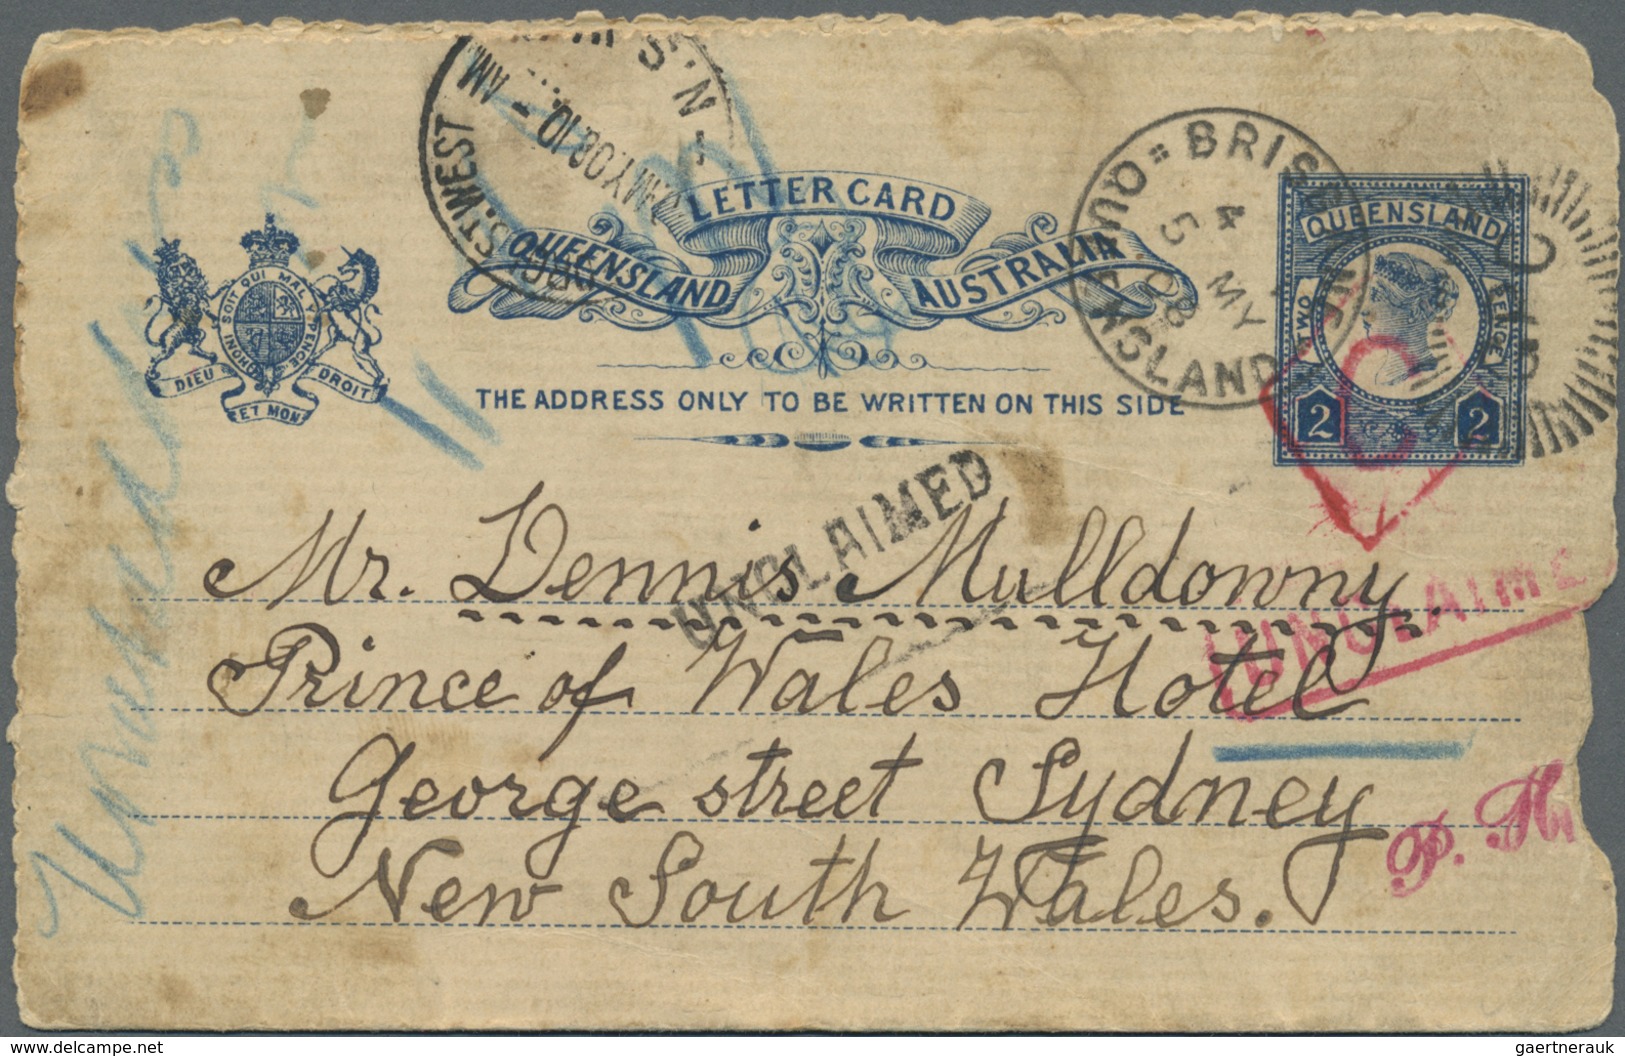 LETTER CARD
QUEENSLAND AUSTRALIA
THE ADDRESS ONLY TO BE WRITTEN ON THIS SIDE
HONI SOIT QUI MAL Y PENSE
DIEU ET MON DROIT
ST. WEST N.S.W.
7 MY 08 10 - AM
BRISBANE QUEENSLAND
4
5 MY
08
QUEENSLAND
TWO PENCE
2 2
UNCLAIMED
UNCLAIME
Mr. Dennis Mulldowny.
Prince of Wales Hotel
George street Sydney
New South Wales.
P. M
www.delcampe.net
gaertnerauk